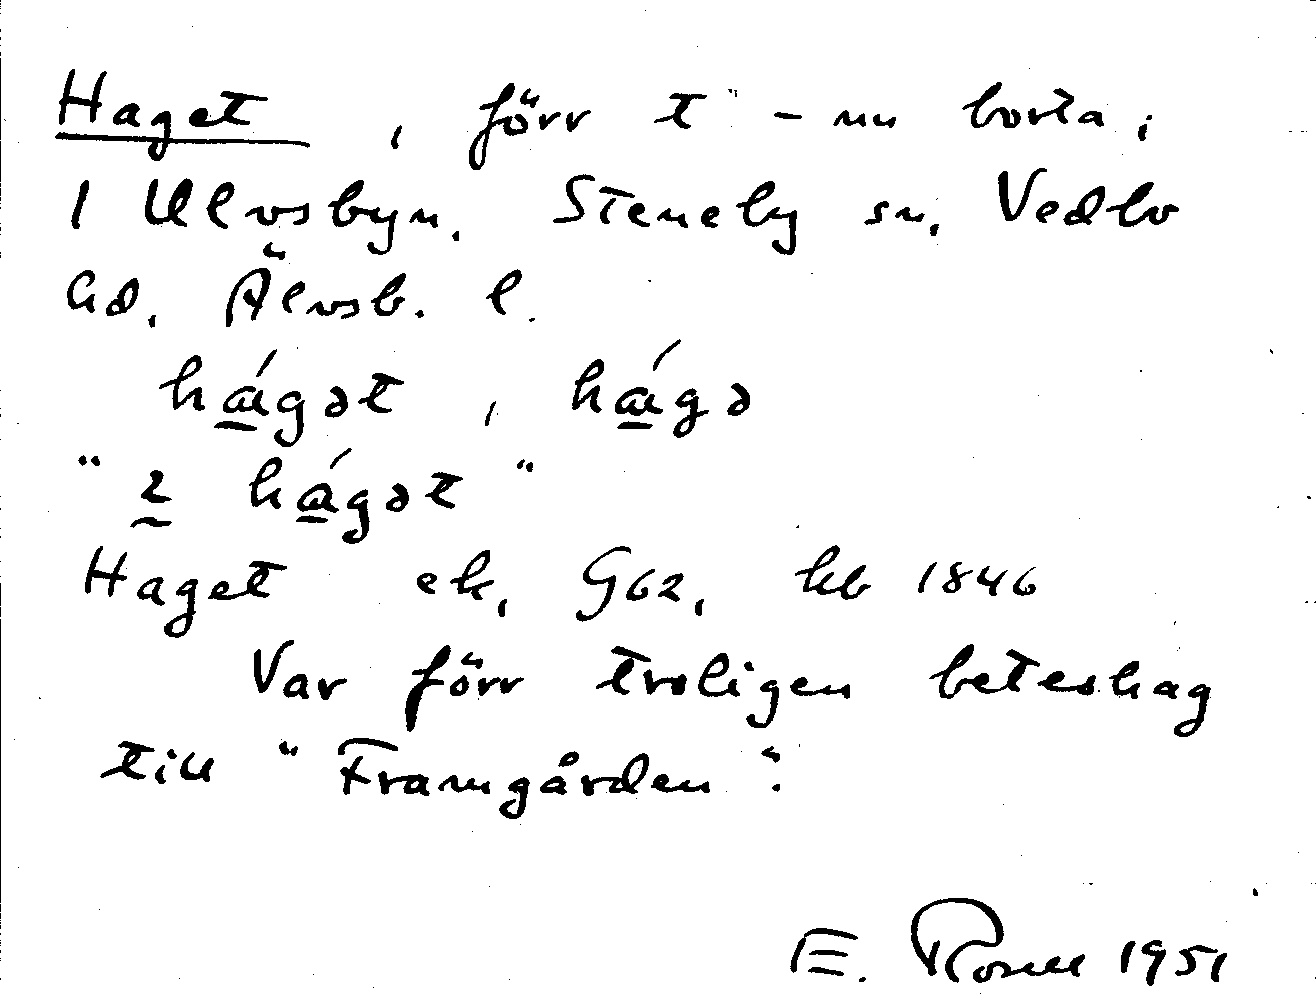 Haget, förr t - nu borta,
1 Ulvsbyn. Steneby sn, Vedbo
hd. Älvsb. l.
há̱gət, há̱gə
" 2 há̱gət "
Haget ek, G62, kb 1846
Var förr troligen beteshag
till "Framgården".
E. Rosell 1951